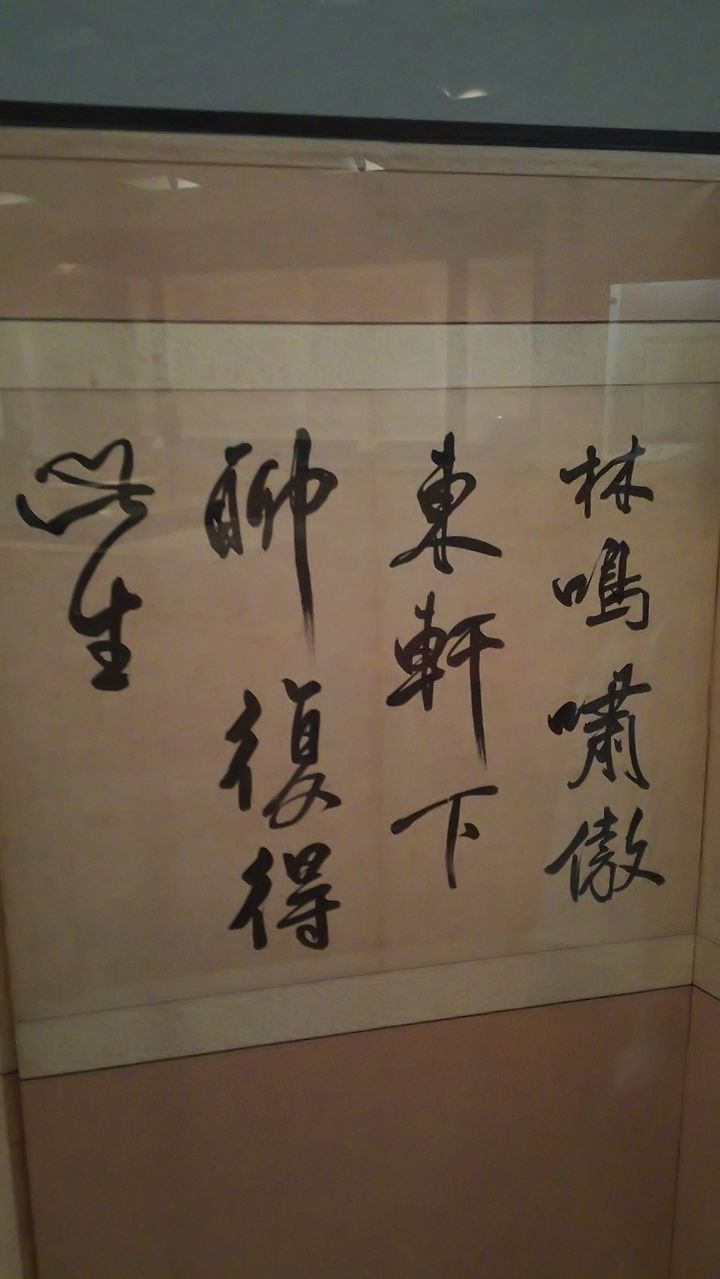 林鳴嘯傲
東軒下
聊復得
此生